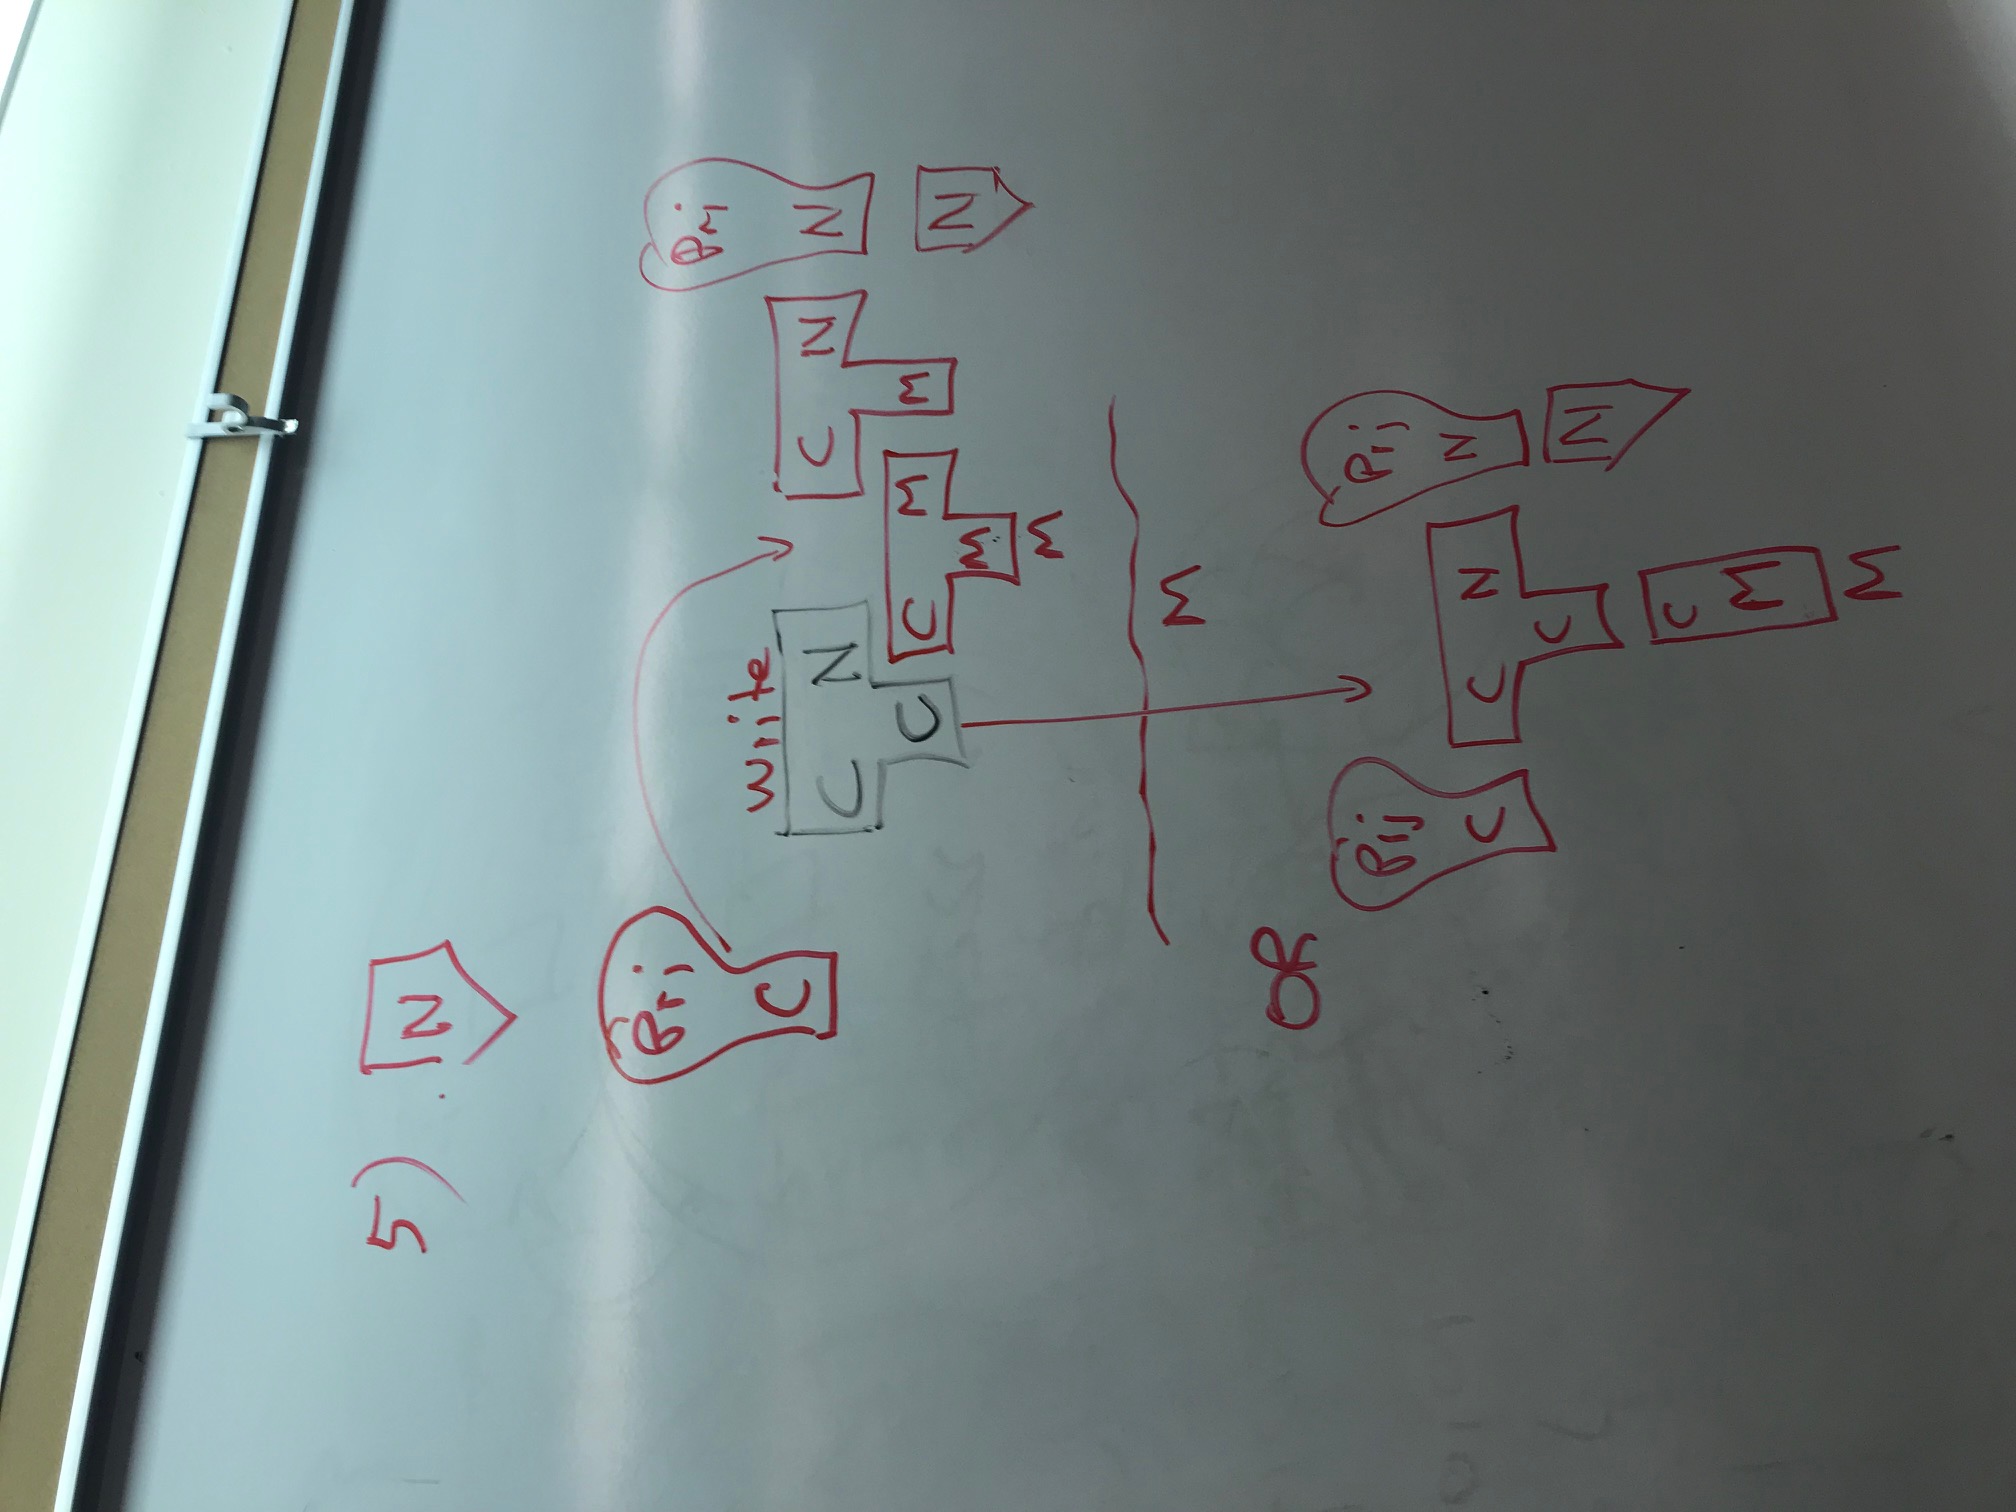 5) N
Prj
C
Write
C N
C
C M
M
M
C N
M
Prj
N
N
M
OR
Prj
C
C N
C
C
M
M
Prj
N
N